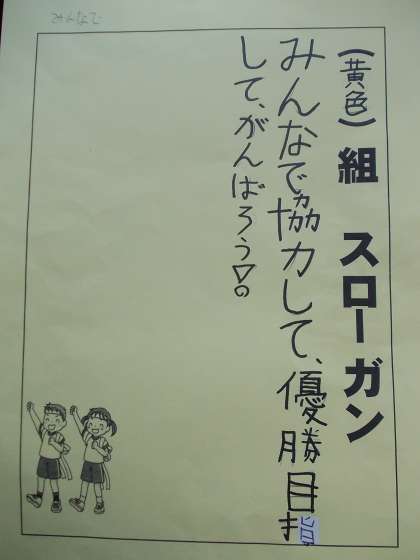 (黄色)組 スローガン
みんなで協力して、優勝目指
して、がんばろう!!
みんなで